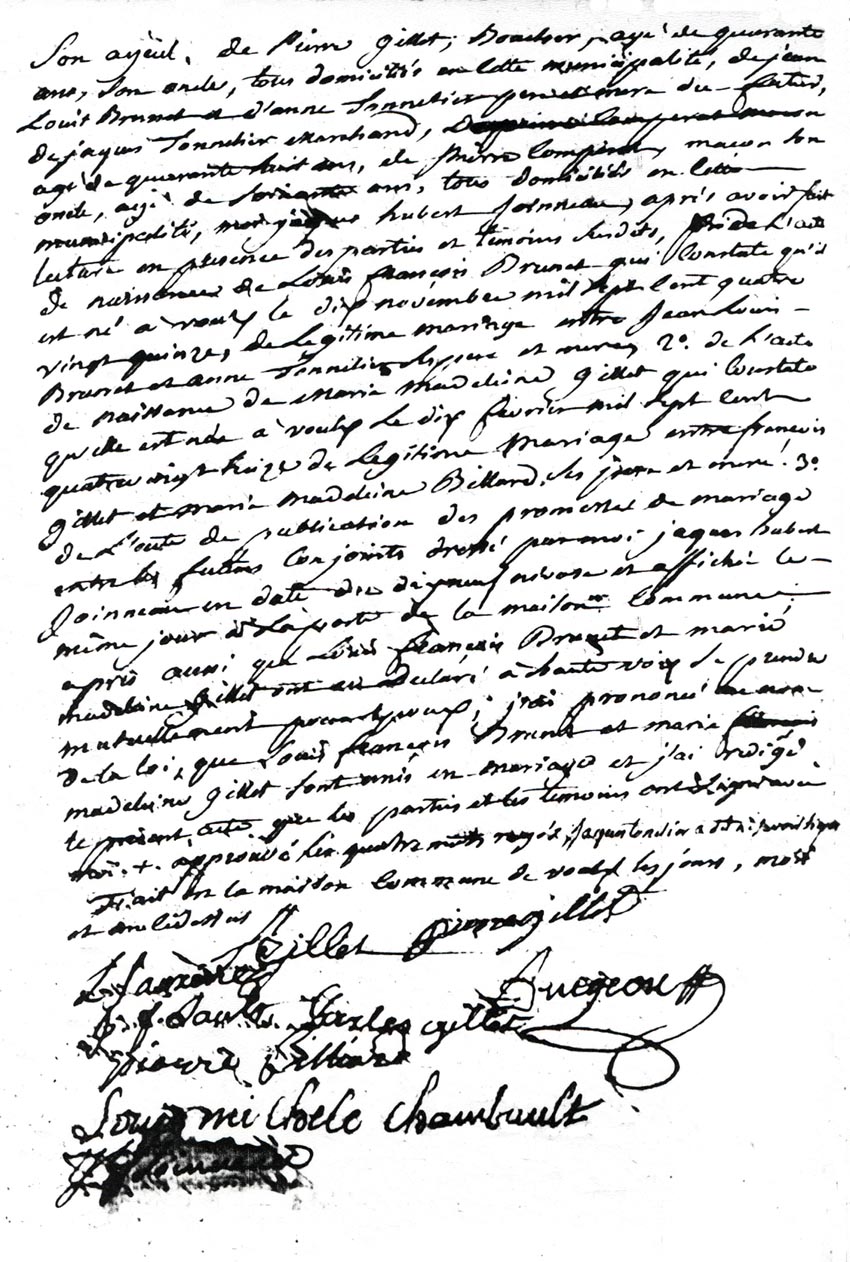 Son ayeul, de Pierre Gillet, Boucher, agé de quarante
ans, son oncle, tous domiciliés en cette municipalité, de jean
Louis Brunet et d'anne Tonnelier pere et mere du futur,
de jaques Tonnelier Marchand,
agé de quarante huit ans, de Pierre Comperat, macon son
oncle, agé de soixante ans, tous domiciliés en cette
municipalité, moi jaques hubert Joinneau, aprés avoir fait
lecture en presence des parties et temoins susdits, de L'acte
de naissance de Louis françois Brunet qui Constate qu'il
est né a voulx le dix novembre mil sept Cent quatre
vingt quinze, de Legitime mariage entre Jean Louis
Brunet et anne Tonnelier ses pere et mere, 2º. de L'acte
de naissance de Marie Madeleine Gillet qui Constate
qu'elle est née a voulx Le dix fevrier mil sept Cent
quatre vingt treize de Legitime Mariage entre françois
Gillet et marie Madeleine Billard, ses pere et mere! 3º
de L'acte de publication des promesses de mariage
entre les futurs Conjoints dressé par moi jaques hubert
Joinneau en date du dixneuf nivose et affiché le
même jour a La porte de la maison Commune;
apris aussi que Louis françois Brunet et marie
madeleine Gillet ont declaré a haute voix se prendre
mutuellement pour epoux; j'ai prononcé au nom
de la loi, que Louis françois Brunet et marie
madeleine Gillet sont unis en mariage et j'ai redigé
le present acte que les parties et les temoins ont Signé avec
moi. +. approuvé les quatre mots rayés,
Fait en la maison Commune de voulx les jours, mois
et an ci dessus
Gillet pierre gillet
Bugeon
Charles gillet
pierre Billiard
Louis michele Chambault
Joinneau